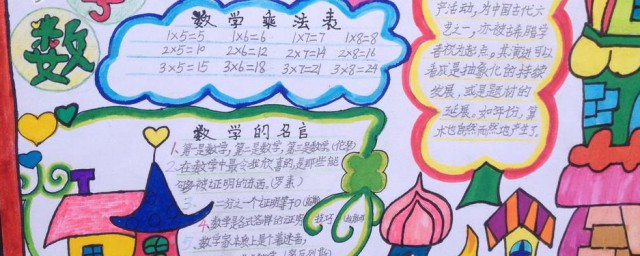 数学
数学乘法表
1×5=5 1×6=6 1×7=7 1×8=8
2×5=10 2×6=12 2×7=14 2×8=16
3×5=15 3×6=18 3×7=21 3×8=24
产活动,为中国古代六
艺之一,亦被古希腊学
者视为起点。其演进可以
看成是抽象化的持续
发展,或是题材的
延展。如年份,算
术也自然而然地产生了.
数学的名言
1、第一是数学,第二是数学,第三是数学(伦琴)
2.在数学中最令我欣喜的是那些能
够被证明的东西,(罗素)
3. 二分之一个证明等于0
4.数学是各式各样的证明
5.数学家本质上是个着迷者,